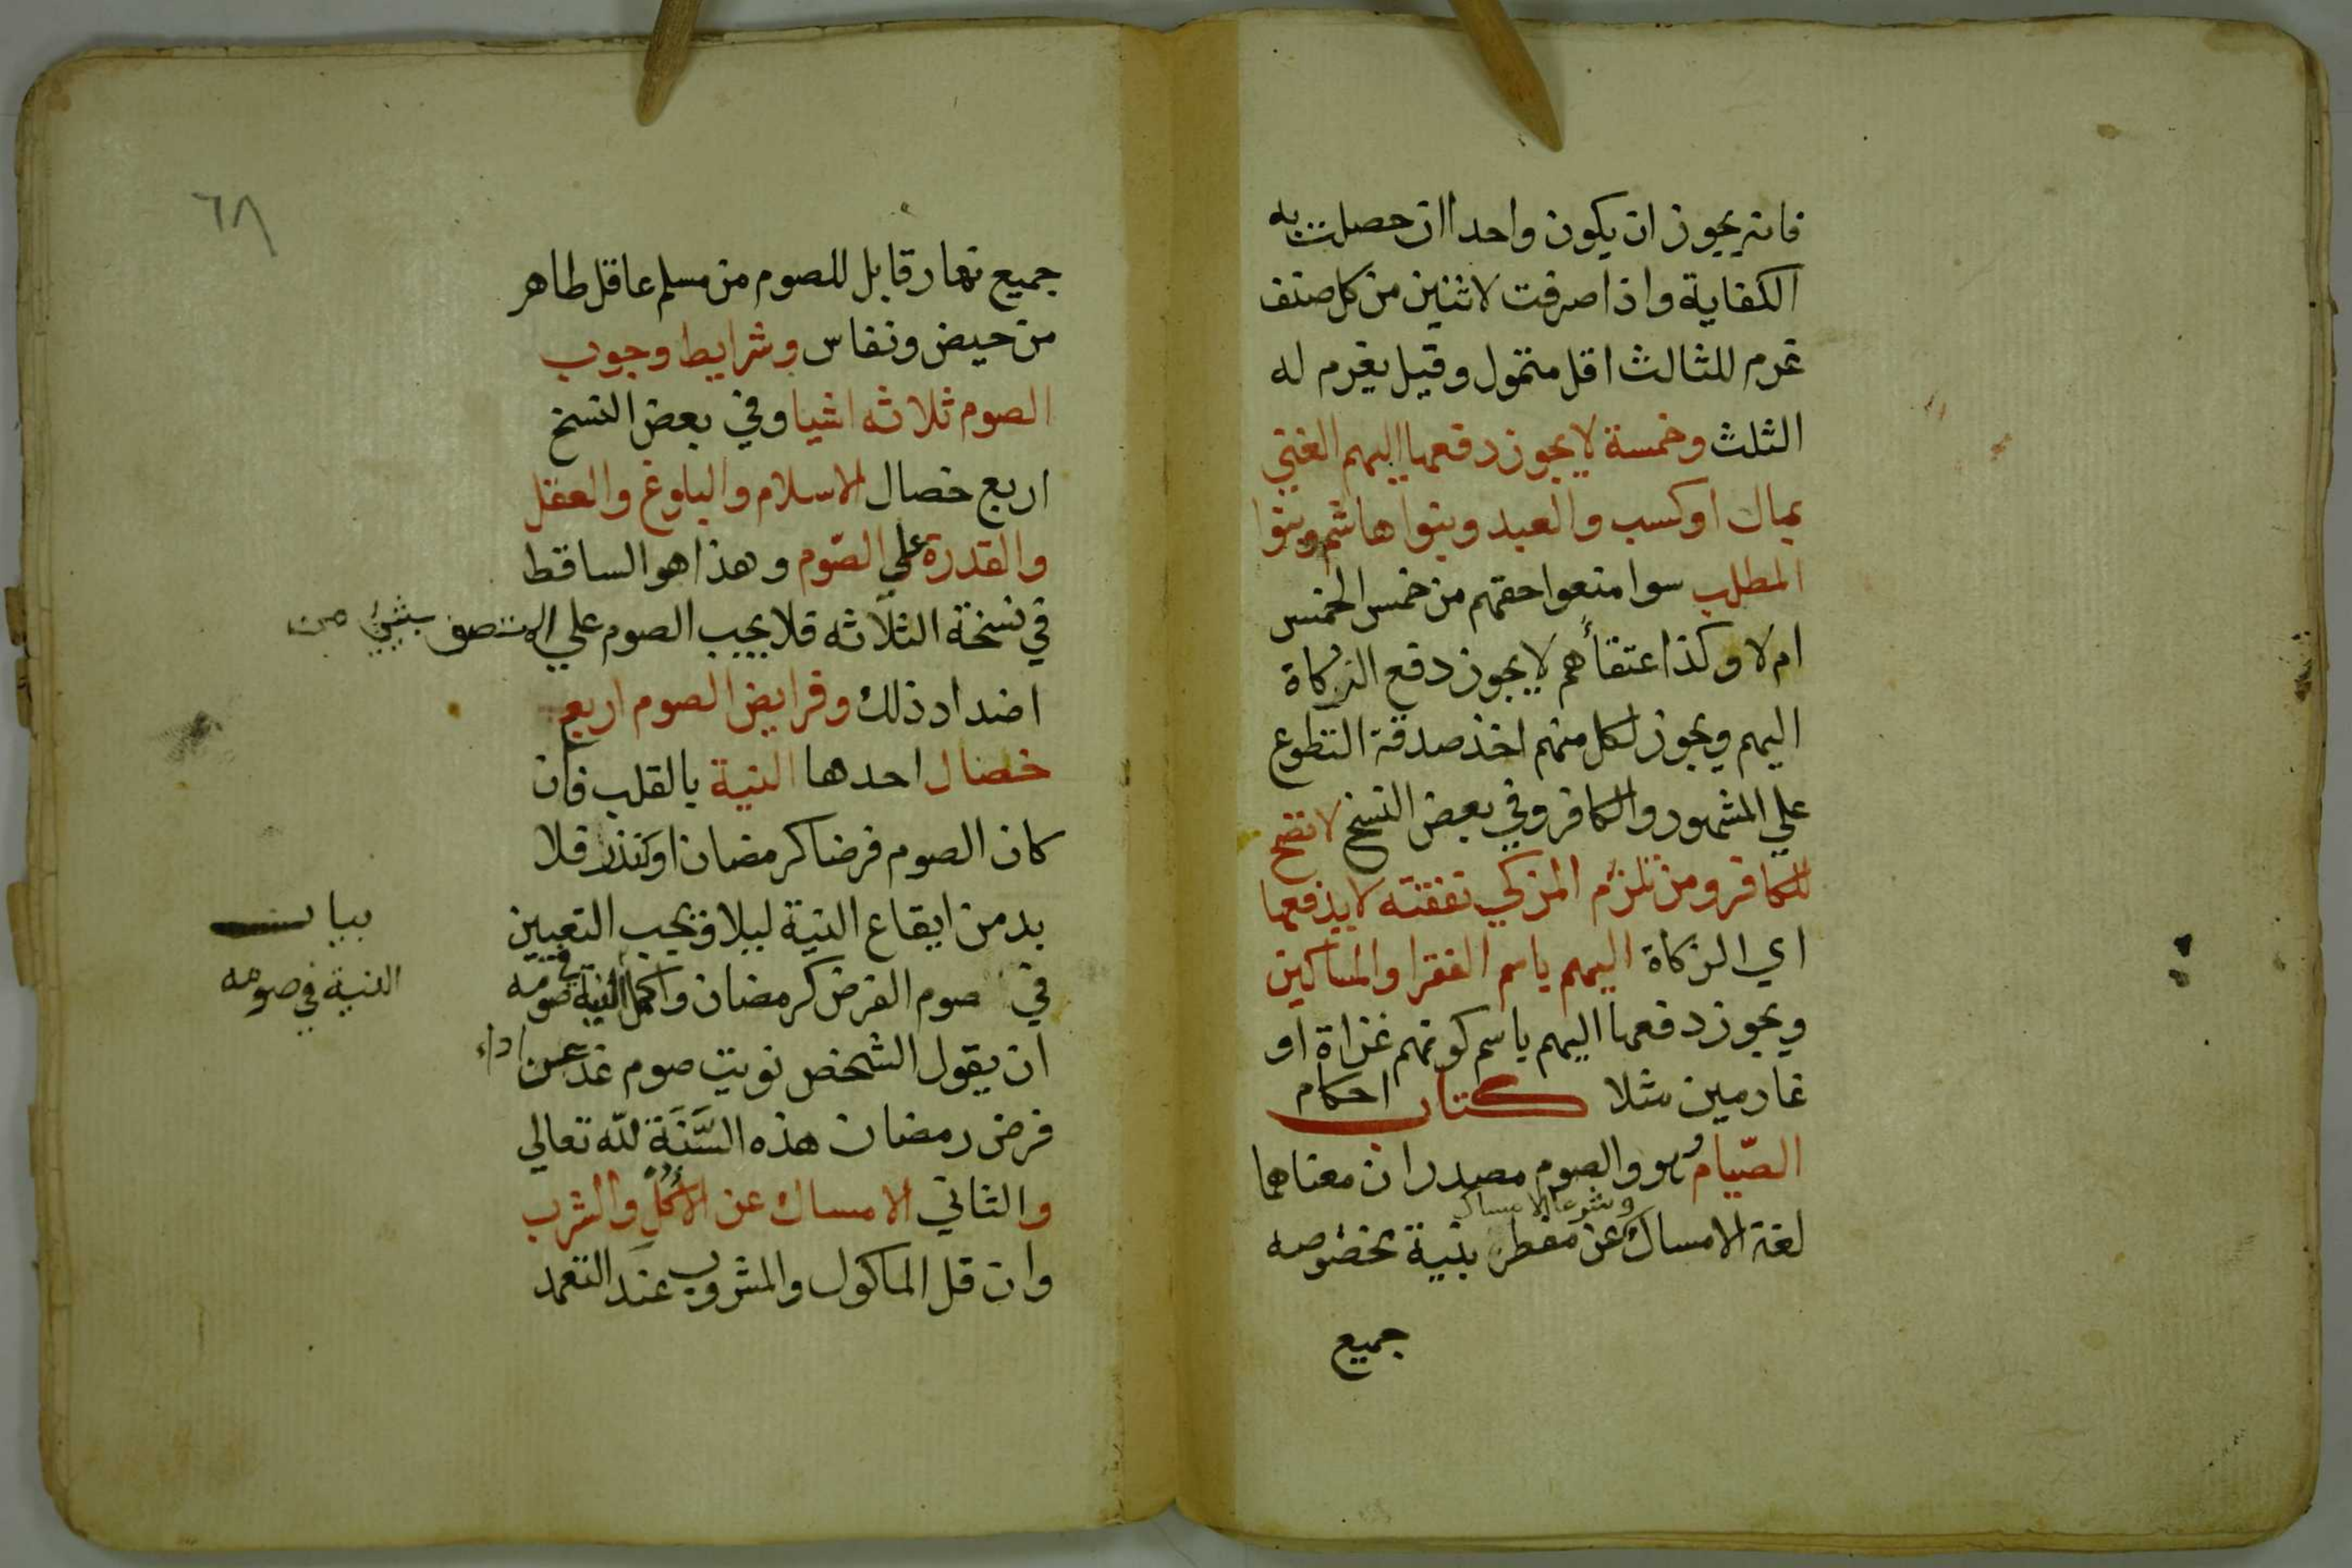 فانه يجوز ان يكون واحدا ان حصلت به
الكفاية واذا صرفت لاثنين من كل صنف
غرم للثالث اقل متمول وقيل يغرم له
الثلث وخمسة لا يجوز دفعها اليهم الغني
بمال او كسب والعبد وبنوا هاشم وبنوا
المطلب سوا منعوا حقهم من خمس الخمس
ام لا وكذا عتقاءهم لا يجوز دفع الزكاة
اليهم ويجوز لكل منهم اخذ صدقة التطوع
علي المشهور والكافر وفي بعض النسخ لا تصح
للكافر ومن تلزم المزكي نفقته لا يدفعها
اي الزكاة اليهم باسم الفقرا والمساكين
ويجوز دفعها اليهم باسم كونهم غزاة او
غارمين مثلا كتاب احكام
الصّيام هو والصوم مصدران معناهما
وشرعا الامساك
لغة الامساك عن مفطر بنية مخصوصه
جميع
٦٨
جميع نهار قابل للصوم من مسلم عاقل طاهر
من حيض ونفاس وشرايط وجوب
الصوم ثلاثه اشيا وفي بعض النسخ
اربع خصال الاسلام والبلوغ والعقل
والقدرة علي الصّوم وهذا هو الساقط
في نسخة الثلاثه فلا يجب الصوم علي المتصف بشيء من
اضداد ذلك وفرايض الصوم اربع
خصال احدها النية بالقلب فان
كان الصوم فرضا كرمضان او كنذر فلا
بد من ايقاع النية ليلا ويجب التعيين
في صوم الفرض كرمضان واكمل النية في صومه
ان يقول الشخص نويت صوم غد عن اداء
فرض رمضان هذه السَّنَة لله تعالي
والثاني الامساك عن الاكل والشرب
وان قل الماكول والمشروب عند التعمد
بيان
النية في صومه